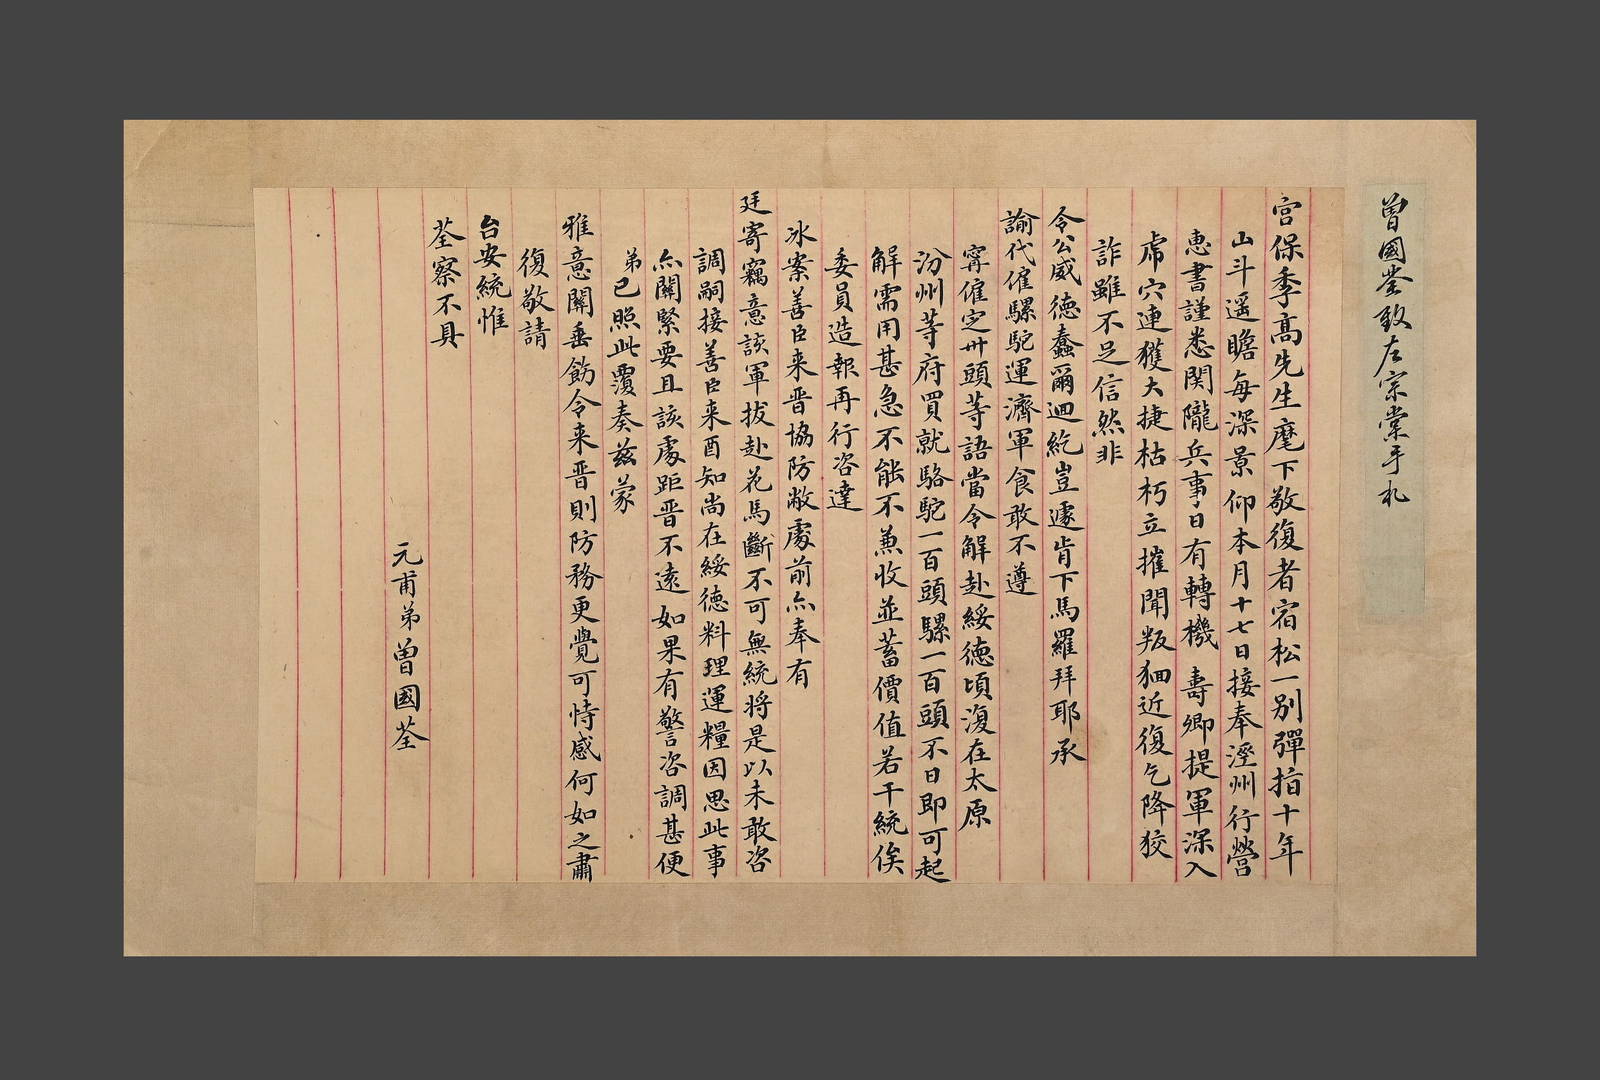 曾國荃致左宗棠手札
宮保季高先生麾下敬復者宿松一别彈指十年
山斗遥瞻每深景仰本月十七日接奉涇州行營
惠書謹悉関隴兵事日有轉機壽卿提軍深入
虎穴連獲大捷枯朽立摧聞叛狪近復乞降狡
詐雖不足信然非
令公威德蠢爾迴紇豈遽肯下馬羅拜耶承
諭代僱騾駝運濟軍食敢不遵
甯僱定卅頭等語當令解赴綏德頃復在太原
汾州等府買就駱駝一百頭騾一百頭不日即可起
解需用甚急不能不兼收並蓄價值若干統俟
委員造報再行咨達
冰案善臣来晋協防敝處前亦奉有
廷寄竊意該軍拔赴花馬斷不可無統将是以未敢咨
調嗣接善臣来酉知尚在綏德料理運糧因思此事
亦關緊要且該處距晋不遠如果有警咨調甚便
弟已照此覆奏兹蒙
雅意關垂飭令来晋則防務更覺可恃感何如之肅
復敬請
台安統惟
荃察不具
元甫弟曾國荃